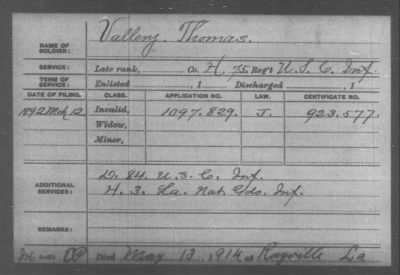 NAME OF SOLDIER: Valleny Thomas.
SERVICE: Late rank, Co. H, 75 Reg't U.S.C. Inf.
TERM OF SERVICE: Enlisted , 1 Discharged , 1
DATE OF FILING. CLASS. APPLICATION NO. LAW. CERTIFICATE NO.
1892 Mch 12 Invalid, 1097.829. J. 923.577.
Widow,
Minor,
ADDITIONAL SERVICES: D. 84. U.S.C. Inf.
H. 3. La. Nat. Gds. Inf.
REMARKS:
Died May 13, 1914, at Rayville La